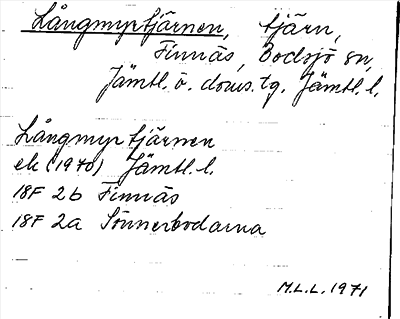 Långmyrtjärnen, tjärn,
Finnäs, Bodsjö sn,
Jämtl. ö. doms. tg. Jämtl. l.
Långmyrtjärnen
ek (1970) Jämtl. l.
18F 2b Finnäs
18F 2a Sönnerbodarna
M.L.L. 1971